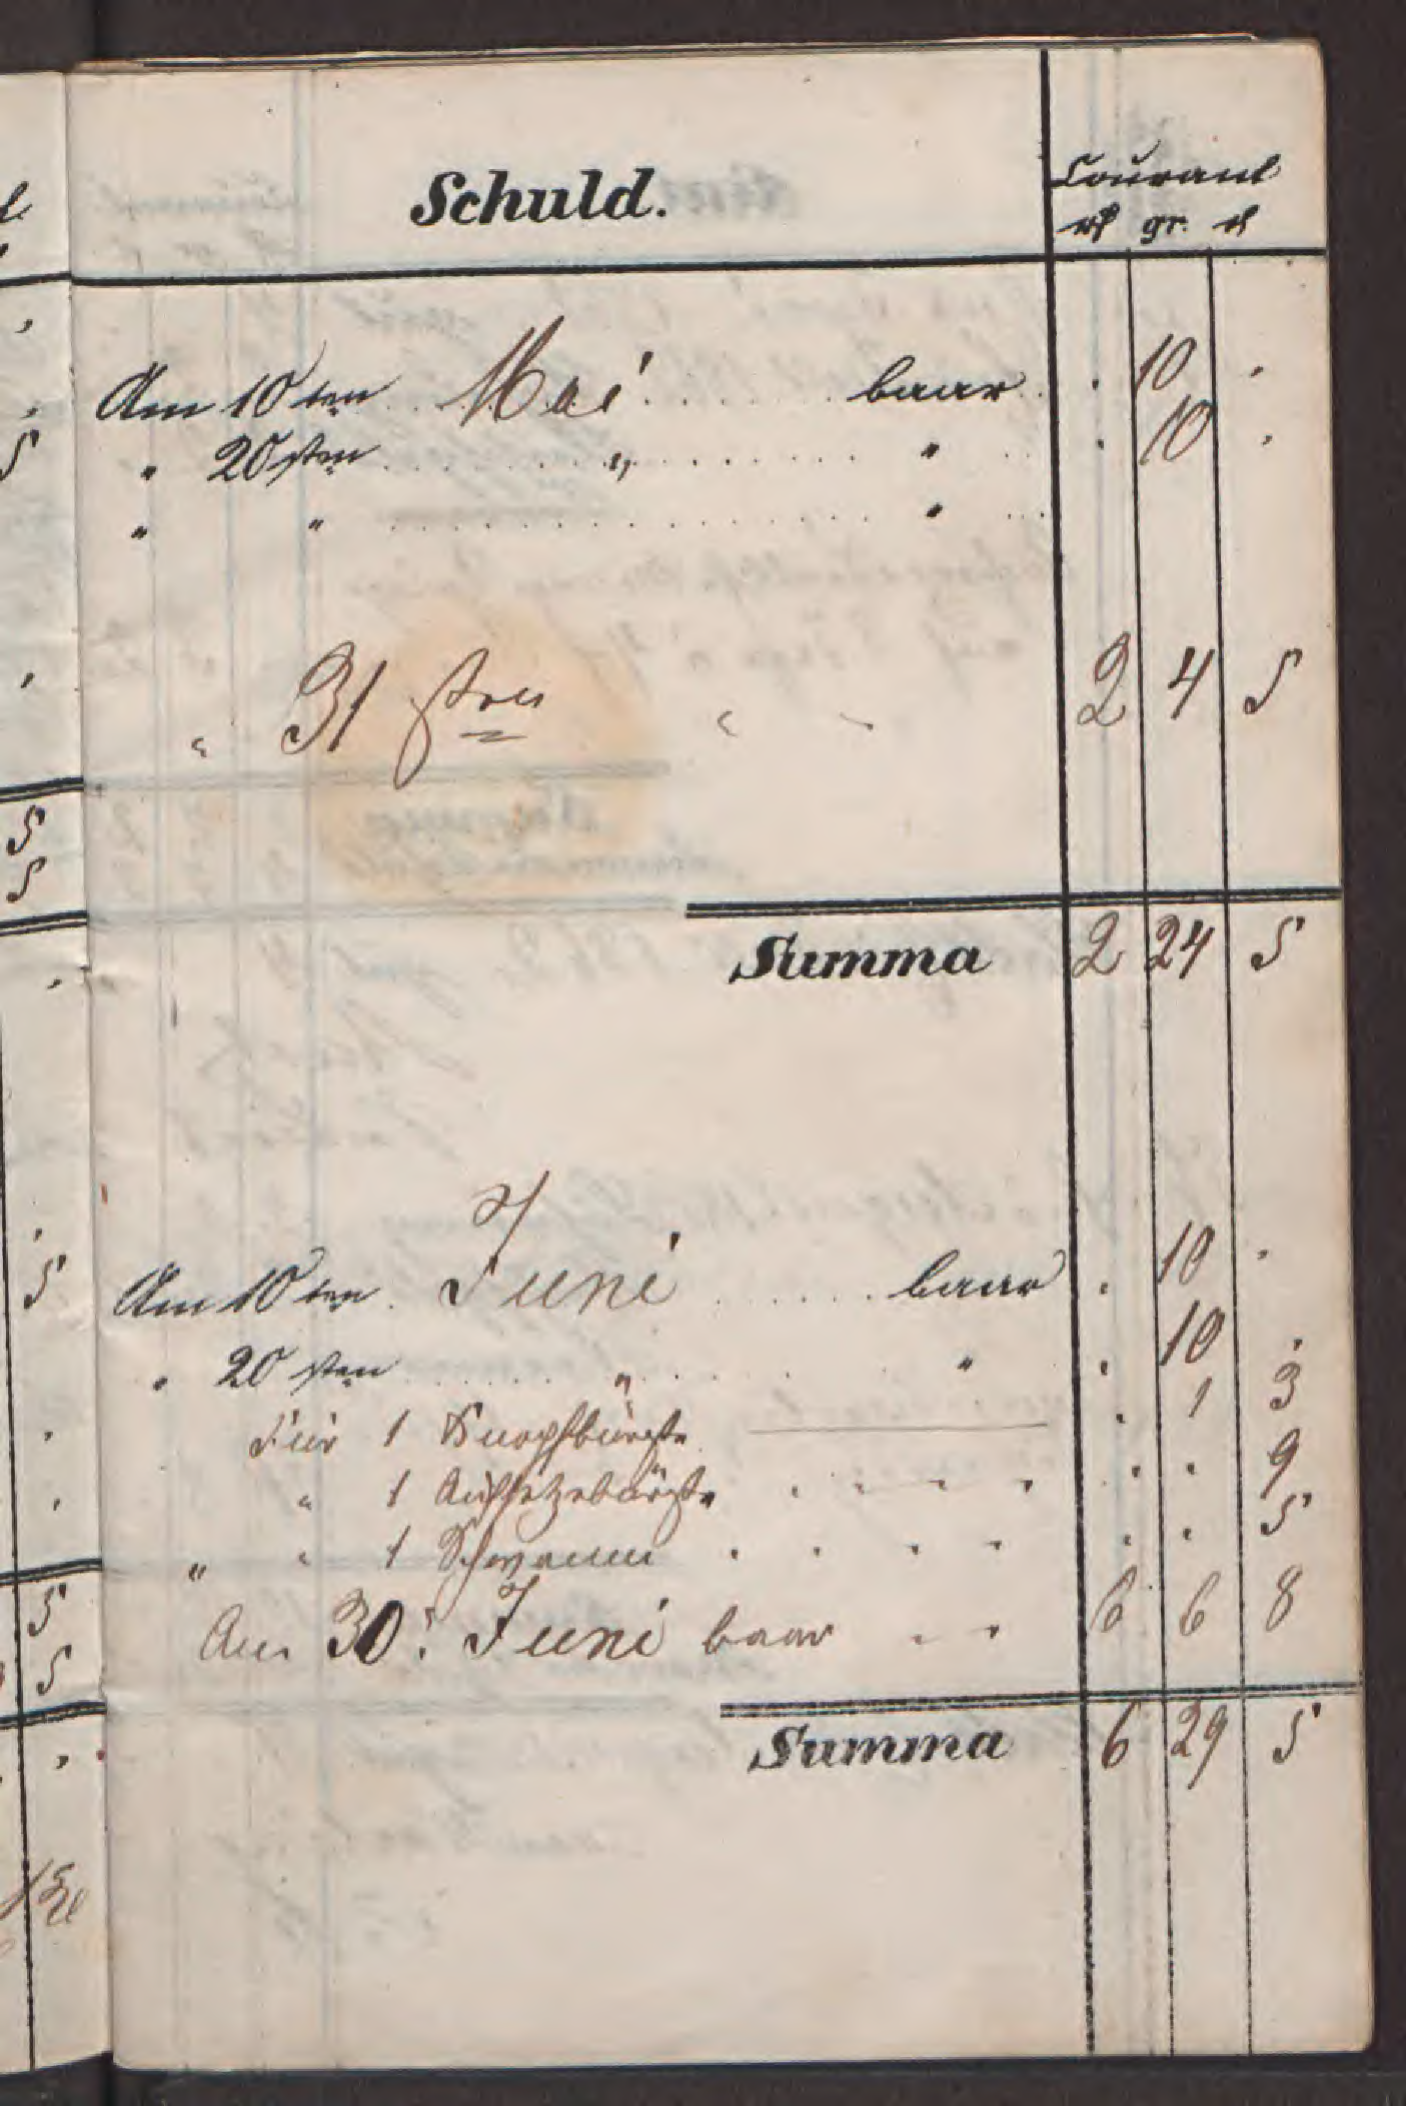 Schuld.
Courant
rℓ gr. ₰
Am 10ten Mai baar . 10 .
" 20sten " " . 10 .
" " "
" 31sten " " 2 4 5
Summa 2 24 5
Am 10ten Juni baar . 10 .
" 20sten " " . 10 .
Für 1 Knopfbürste . 1 3
" 1 Aufsetzebürste . . 9
" " 1 Schwamm . . 5
Am 30. Juni baar 6 6 8
Summa 6 29 5